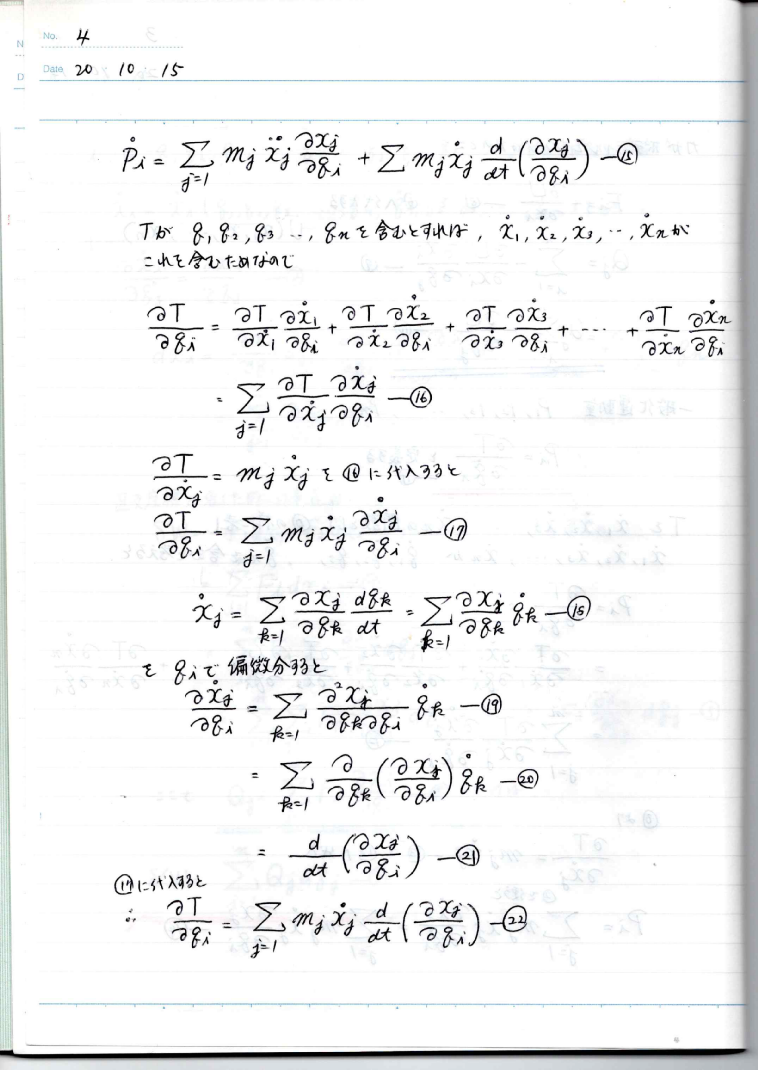 No. 4
Date 20 10 15
ṗᵢ = Σ_{j=1} mⱼ ẍⱼ ∂xⱼ/∂qᵢ + Σ mⱼ ẋⱼ d/dt (∂xⱼ/∂qᵢ) —⑮
Tが q₁, q₂, q₃ ..., qₙ を含むとすれば, ẋ₁, ẋ₂, ẋ₃, ..., ẋₙが
これを含むためなので
∂T/∂qᵢ = ∂T/∂ẋ₁ ∂ẋ₁/∂qᵢ + ∂T/∂ẋ₂ ∂ẋ₂/∂qᵢ + ∂T/∂ẋ₃ ∂ẋ₃/∂qᵢ + ... + ∂T/∂ẋₙ ∂ẋₙ/∂qᵢ
= Σ_{j=1} ∂T/∂ẋⱼ ∂ẋⱼ/∂qᵢ —⑯
∂T/∂ẋⱼ = mⱼ ẋⱼ を ⑯ に代入すると
∂T/∂qᵢ = Σ_{j=1} mⱼ ẋⱼ ∂ẋⱼ/∂qᵢ —⑰
ẋⱼ = Σ_{k=1} ∂xⱼ/∂qₖ dqₖ/dt = Σ_{k=1} ∂xⱼ/∂qₖ q̇ₖ —⑱
を qᵢで 偏微分すると
∂ẋⱼ/∂qᵢ = Σ_{k=1} ∂²xⱼ/∂qₖ∂qᵢ q̇ₖ —⑲
= Σ_{k=1} ∂/∂qₖ (∂xⱼ/∂qᵢ) q̇ₖ —⑳
= d/dt (∂xⱼ/∂qᵢ) —㉑
⑰に代入すると
∴ ∂T/∂qᵢ = Σ_{j=1} mⱼ ẋⱼ d/dt (∂xⱼ/∂qᵢ) —㉒